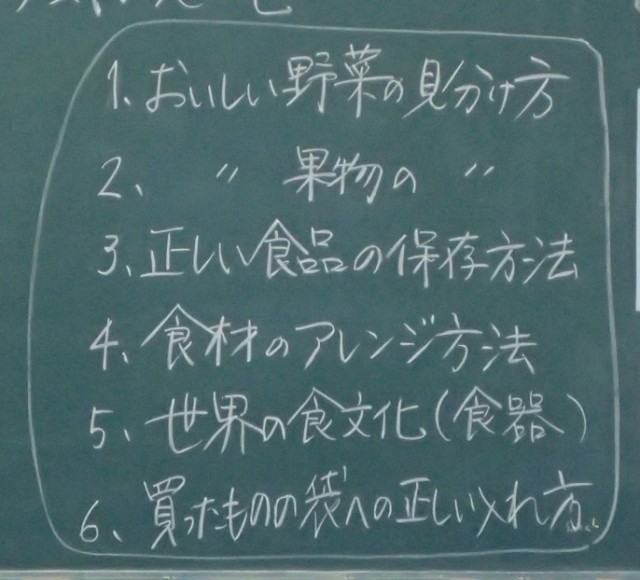 1、おいしい野菜の見分け方
2、 〃 果物の 〃
3、正しい食品の保存方法
4、食材のアレンジ方法
5、世界の食文化(食器)
6、買ったものの袋への正しい入れ方